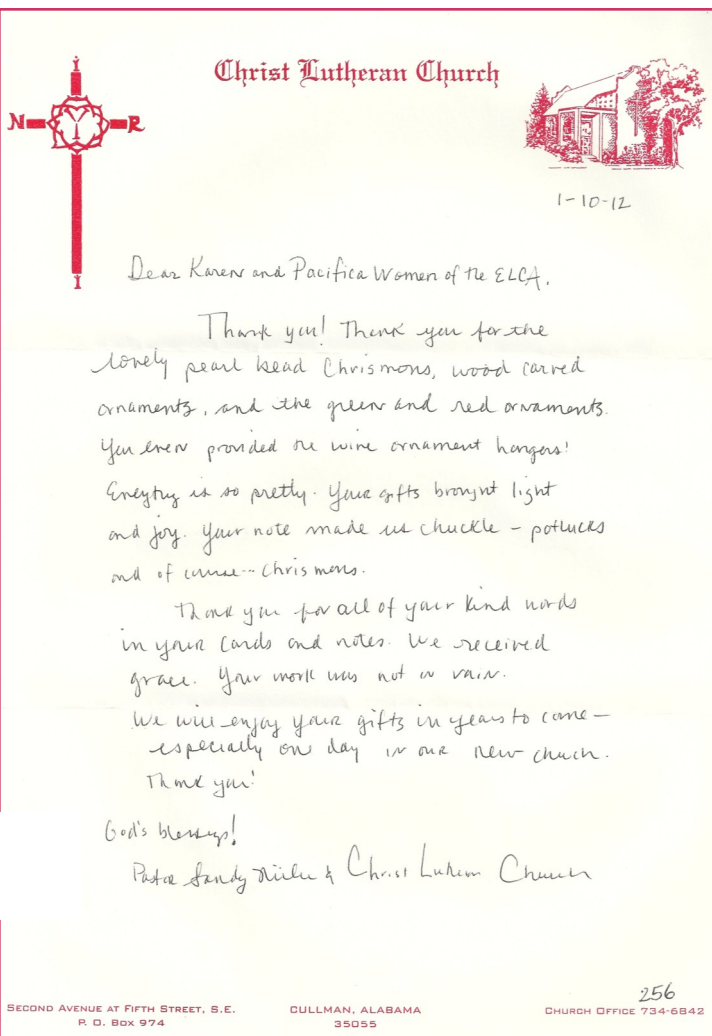 I
Christ Lutheran Church
N R
I
1-10-12
Dear Karen and Pacifica Women of the ELCA,
Thank you! Thank you for the
lovely pearl bead Chrismons, wood carved
ornaments, and the green and red ornaments.
You even provided the wire ornament hangers!
Everything is so pretty. Your gifts brought light
and joy. Your note made us chuckle – potlucks
and of course -- Chrismons.
Thank you for all of your kind words
in your cards and notes. We received
grace. Your work was not in vain.
We will enjoy your gifts in years to come –
especially one day in our new church.
Thank you!
God's blessings!
Pastor Sandy & Christ Lutheran Church
256
SECOND AVENUE AT FIFTH STREET, S.E.
P. O. BOX 974
CULLMAN, ALABAMA
35055
CHURCH OFFICE 734-6842